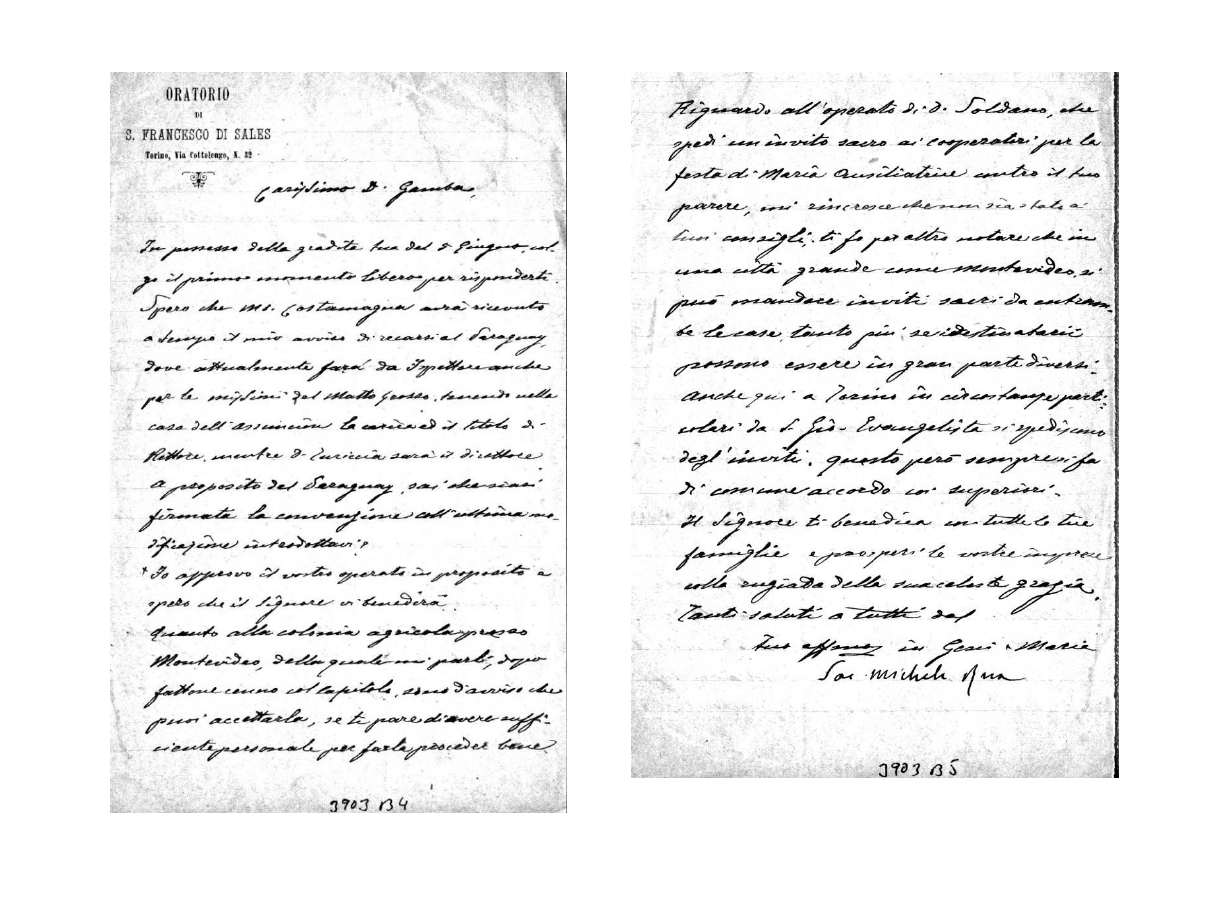 ORATORIO
DI
S. FRANCESCO DI SALES
Torino, Via Cottolengo, N. 32
Carissimo D. Gamba,
In possesso della gradita tua del 5 Giugno, col-
go il primo momento libero per risponderti.
Spero che Ms. Costamagna avrà ricevuto
a tempo il mio avviso di recarsi al Paraguay,
dove attualmente farà da Ispettore anche
per le missioni del Matto Grosso, tenendo nella
casa dell'Assunción la carica ed il titolo di
Rettore, mentre D. Turiccia sarà il direttore
A proposito del Paraguay, sai che siasi
firmata la convenzione coll'ultima mo-
dificazione introdottavi?
Io approvo il vostro operato in proposito e
spero che il Signore vi benedirà.
Quanto alla colonia agricola presso
Montevideo, della quale mi parli, dopo
fattone cenno col Capitolo, sono d'avviso che
puoi accettarla, se ti pare di avere suffi-
ciente personale per farla proceder bene
3903 B4
Riguardo all'operato di D. Soldano, che
spedì un invito sacro ai cooperatori per la
festa di Maria Ausiliatrice contro il tuo
parere, mi rincresce che non sia stato a'
tuoi consigli; ti fo per altro notare che in
una città grande come Montevideo, si
può mandare inviti sacri da entram-
be le case, tanto più se i destinatarii
possono essere in gran parte diversi.
Anche qui a Torino in circostanze parti-
colari da S. Gio. Evangelista si spediscono
degl'inviti. Questo però sempre si fa
di comune accordo coi superiori.
Il Signore ti benedica con tutte le tue
famiglie e prosperi le vostre imprese
colla rugiada della sua celeste grazia.
Tanti saluti a tutti dal
tuo affmo in Gesù e Maria
Sac. Michele Rua
3903 B5